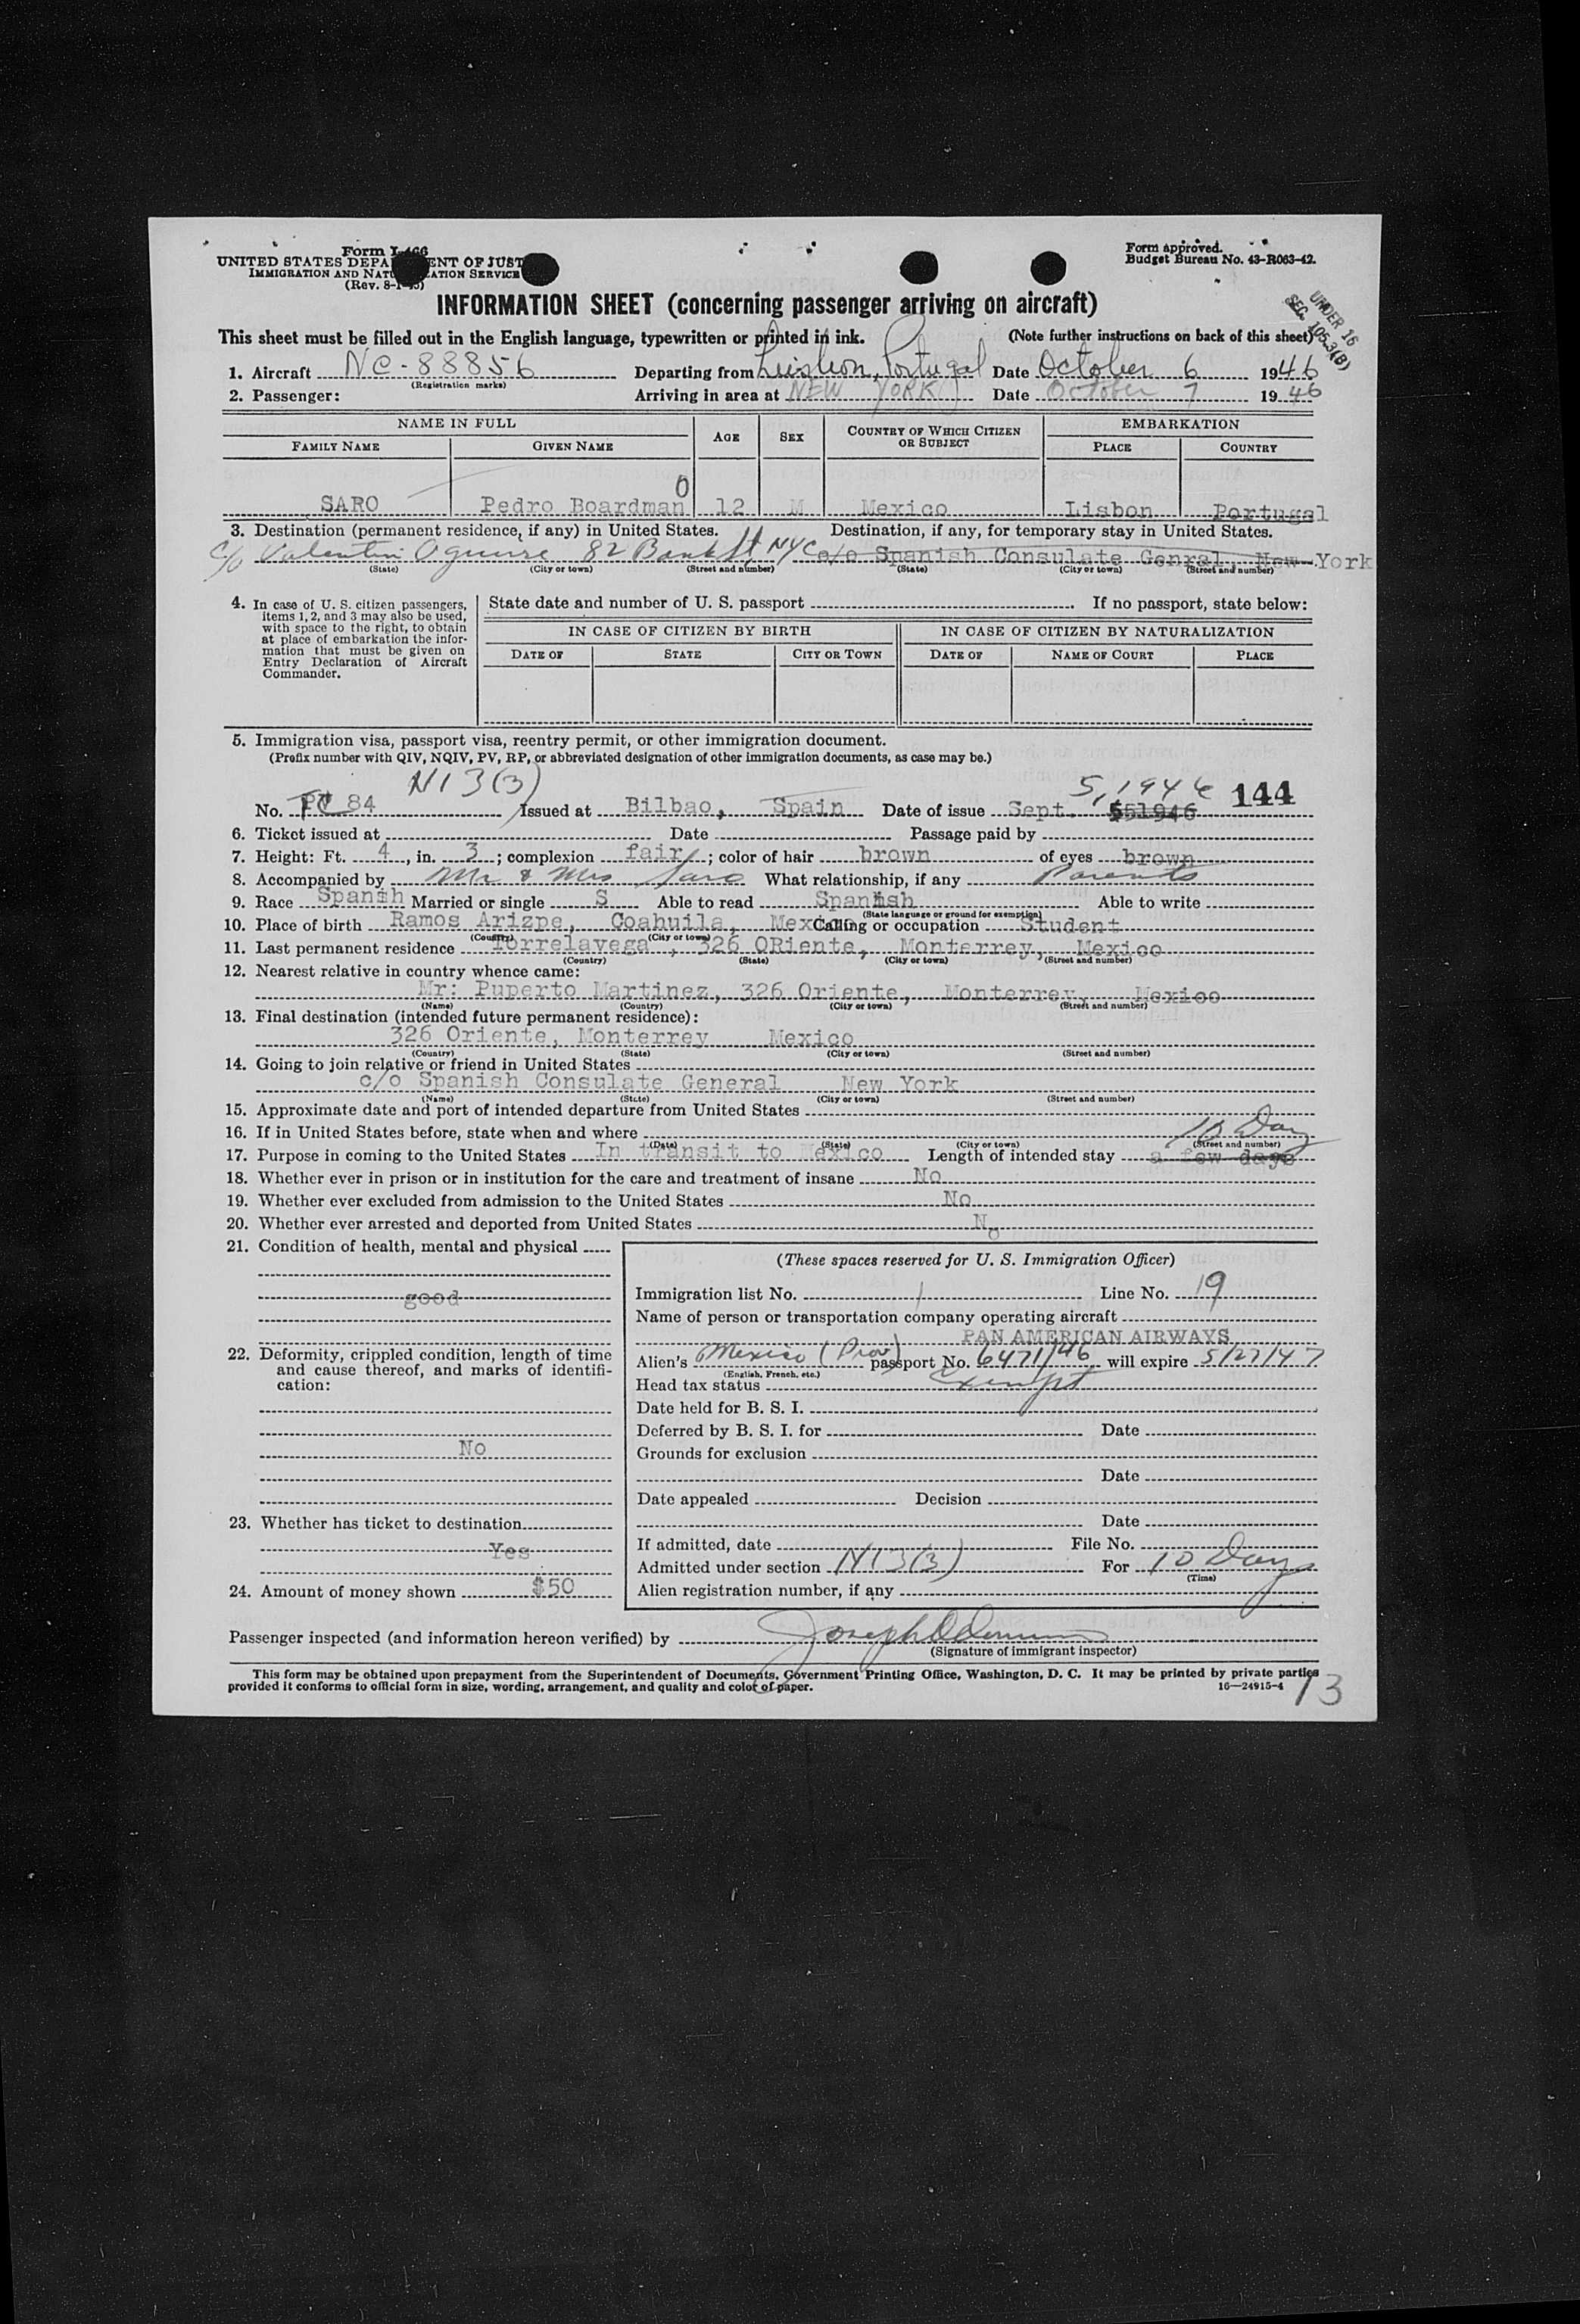 Form I-466
UNITED STATES DEPA ENT OF JUST
IMMIGRATION AND NATU ATION SERVICE
(Rev. 8-1-45)
Form approved.
Budget Bureau No. 43-R063-42.
INFORMATION SHEET (concerning passenger arriving on aircraft)
UNDER 16
SEC. 105.3(B)
This sheet must be filled out in the English language, typewritten or printed in ink. (Note further instructions on back of this sheet)
1. Aircraft NC-88856 Departing from Lisbon, Portugal Date October 6 1946
(Registration marks)
2. Passenger: Arriving in area at NEW YORK Date October 7 1946
NAME IN FULL AGE SEX COUNTRY OF WHICH CITIZEN OR SUBJECT EMBARKATION
FAMILY NAME GIVEN NAME PLACE COUNTRY
0
SARO Pedro Boardman 12 M Mexico Lisbon Portugal
3. Destination (permanent residence, if any) in United States. Destination, if any, for temporary stay in United States.
c/o Valentin Aguirre 82 Bank St NYC c/o Spanish Consulate Genral, New York
(State) (City or town) (Street and number) (State) (City or town) (Street and number)
4. In case of U. S. citizen passengers, items 1, 2, and 3 may also be used, with space to the right, to obtain at place of embarkation the information that must be given on Entry Declaration of Aircraft Commander.
State date and number of U. S. passport If no passport, state below:
IN CASE OF CITIZEN BY BIRTH IN CASE OF CITIZEN BY NATURALIZATION
DATE OF STATE CITY OR TOWN DATE OF NAME OF COURT PLACE
5. Immigration visa, passport visa, reentry permit, or other immigration document.
(Prefix number with QIV, NQIV, PV, RP, or abbreviated designation of other immigration documents, as case may be.)
N13(3) 5, 1946 144
No. 84 Issued at Bilbao, Spain Date of issue Sept. 551946
6. Ticket issued at Date Passage paid by
7. Height: Ft. 4, in. 3; complexion fair; color of hair brown of eyes brown
8. Accompanied by Mr & Mrs Saro What relationship, if any Parents
9. Race Spanish Married or single S Able to read Spanish Able to write
(State language or ground for exemption)
10. Place of birth Ramos Arizpe, Coahuila, Mexico Calling or occupation Student
(Country) (City or town)
11. Last permanent residence Torrelavega, 326 ORiente, Monterrey, Mexico
(Country) (State) (City or town) (Street and number)
12. Nearest relative in country whence came:
Mr: Puperto Martinez, 326 Oriente, Monterrey, Mexico
(Name) (Country) (City or town) (Street and number)
13. Final destination (intended future permanent residence):
326 Oriente, Monterrey Mexico
(Country) (State) (City or town) (Street and number)
14. Going to join relative or friend in United States
c/o Spanish Consulate General New York
(Name) (State) (City or town) (Street and number)
15. Approximate date and port of intended departure from United States
16. If in United States before, state when and where 10 Day
(Date) (State) (City or town) (Street and number)
17. Purpose in coming to the United States In transit to Mexico Length of intended stay a few days
18. Whether ever in prison or in institution for the care and treatment of insane No
19. Whether ever excluded from admission to the United States No
20. Whether ever arrested and deported from United States No
21. Condition of health, mental and physical
good
22. Deformity, crippled condition, length of time and cause thereof, and marks of identification:
No
23. Whether has ticket to destination
Yes
24. Amount of money shown $50
(These spaces reserved for U. S. Immigration Officer)
Immigration list No. 1 Line No. 19
Name of person or transportation company operating aircraft
PAN AMERICAN AIRWAYS
Alien's Mexico (Prov) passport No. 6471/46 will expire 5/27/47
(English, French, etc.)
Head tax status Exempt
Date held for B. S. I.
Deferred by B. S. I. for Date
Grounds for exclusion
Date
Date appealed Decision
Date
If admitted, date File No.
Admitted under section N13(3) For 10 Days
(Time)
Alien registration number, if any
Passenger inspected (and information hereon verified) by Joseph
(Signature of immigrant inspector)
This form may be obtained upon prepayment from the Superintendent of Documents, Government Printing Office, Washington, D. C. It may be printed by private parties
provided it conforms to official form in size, wording, arrangement, and quality and color of paper. 16—24915-4
13